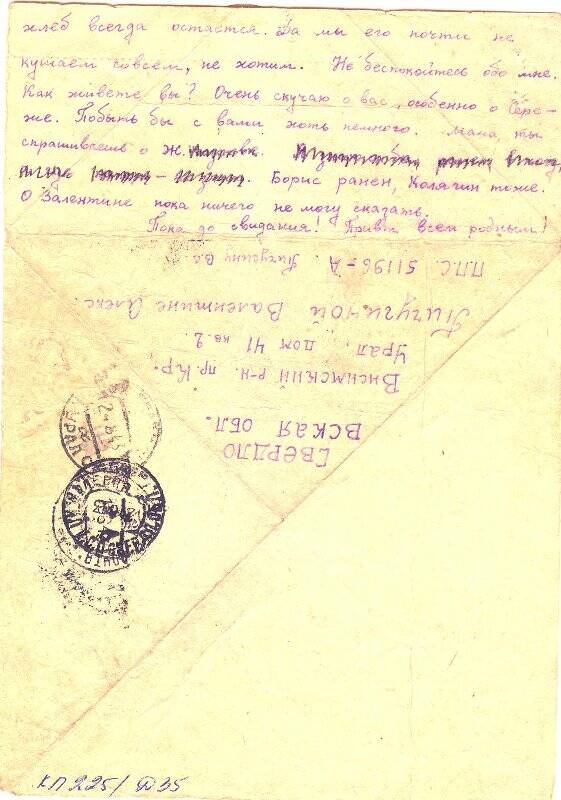 хлеб всегда остается. Да мы его почти не
кушаем совсем, не хотим. Не беспокойтесь обо мне.
Как живете вы? Очень скучаю о вас, особенно о Серё-
же. Побыть бы с вами хоть немного. Мама, ты
спрашиваешь о Ж.
Борис ранен, Колячин тоже.
О Валентине пока ничего не могу сказать.
Пока до свидания! Привет всем родным!
СВЕРДЛО
ВСКАЯ ОБЛ.
Висимский р-н. пр. Кр.
Урал, дом 41 кв. 2.
Пичугиной Валентине Алекс.
П.П.С. 51196-А Пичугину В.
КП 225/ Д35